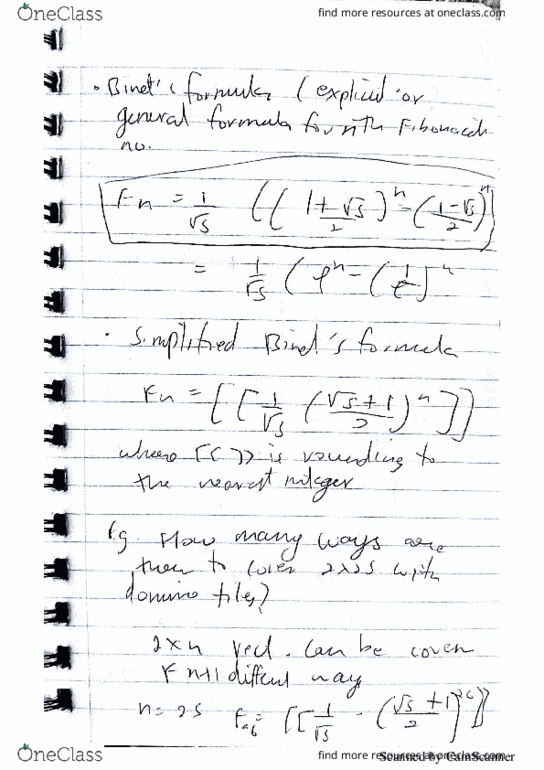 OneClass
find more resources at oneclass.com
• Binet's formula ( explicit or
general formula for nth Fibonacci
no.
Fn = 1/√5 (( (1+√5)/2 )^n - ( (1-√5)/2 )^n)
= 1/√5 ( φ^n - (
• Simplified Binet's formula
Fn = [[ 1/√5 ( (√5+1)/2 )^n ]]
where [[ ]] is rounding to
the nearest integer
Eg. How many ways are
there to cover 2x25 with
domino tiles?
2×n rect. can be cover
Fn+1 different way
n= 25 F26= [[ 1/√5 · ( (√5+1)/2 )^26 ]]
OneClass
find more resources at oneclass.com
Scanned by CamScanner